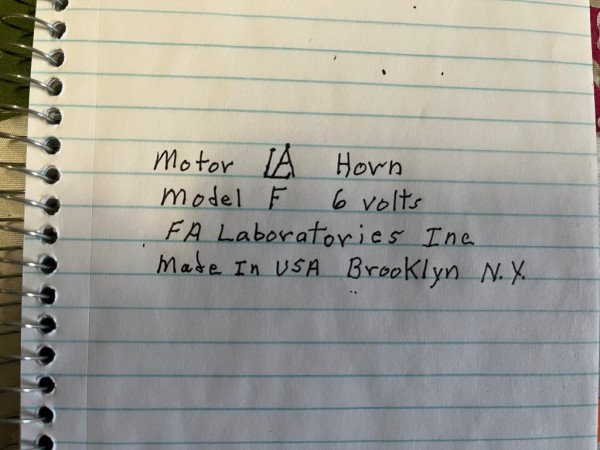 Motor IA Horn
Model F 6 volts
FA Laboratories Inc
Made In USA Brooklyn N.Y.